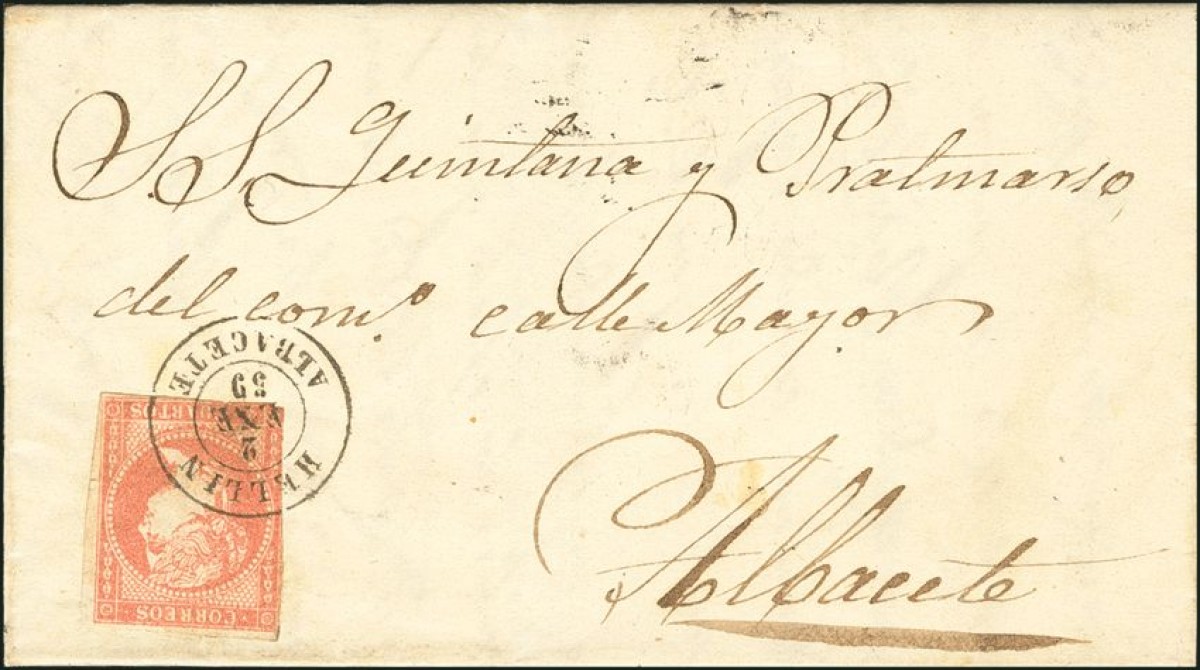 S.S. Quintana y Pratmarso,
del com.º calle Mayor
Albacete
HELLIN
2
ENE
59
ALBACETE
CORREOS
CUARTOS